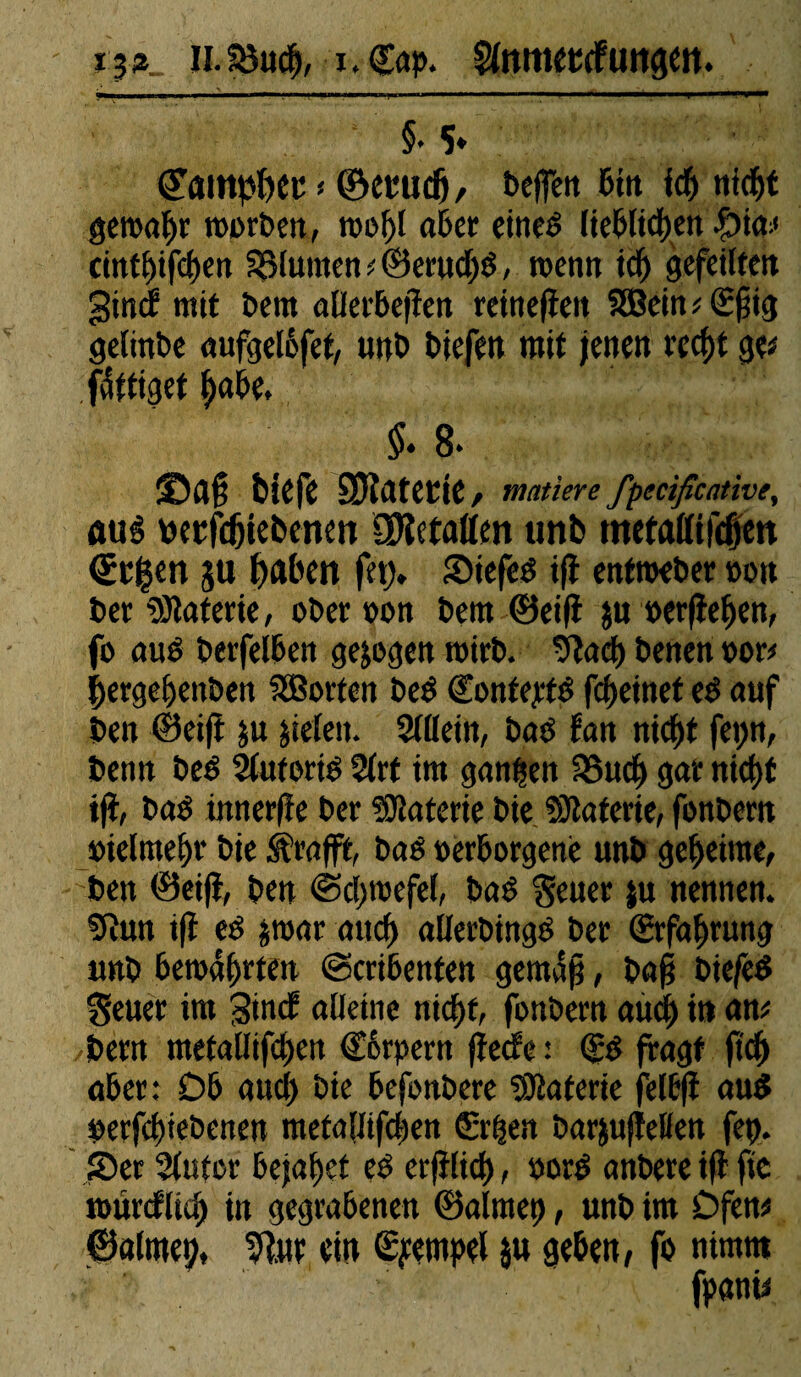 132 II. Buch, 1. Cap. Anmerckungen.
§. 5.
Campher-Geruch, dessen bin ich nicht
gewahr worden, wohl aber eines lieblichen Hia-
cinthischen Blumen-Geruchs, wenn ich gefeilten
Zinck mit dem allerbesten reinesten Wein-Eßig
gelinde aufgelöset, und diesen mit jenen recht ge-
sättiget habe.
§. 8.
Daß diese Materie, matiere specificative,
aus verschiedenen Metallen und metallischen
Ertzen zu haben sey. Dieses ist entweder von
der Materie, oder von dem Geist zu verstehen,
so aus derselben gezogen wird. Nach denen vor-
hergehenden Worten des Contexts scheinet es auf
den Geist zu zielen. Allein, das kan nicht seyn,
denn des Autoris Art im gantzen Buch gar nicht
ist, das innerste der Materie die Materie, sondern
vielmehr die Krafft, das verborgene und geheime,
den Geist, den Schwefel, das Feuer zu nennen.
Nun ist es zwar auch allerdings der Erfahrung
und bewährten Scribenten gemäß, daß dieses
Feuer im Zinck alleine nicht, sondern auch in an-
dern metallischen Cörpern stecke: Es fragt sich
aber: Ob auch die besondere Materie selbst aus
verschiedenen metallischen Ertzen darzustellen sey.
Der Autor bejahet es erstlich, vors andere ist sie
würcklich in gegrabenen Galmey, und im Ofen-
Galmey. Nur ein Exempel zu geben, so nimm
spani-